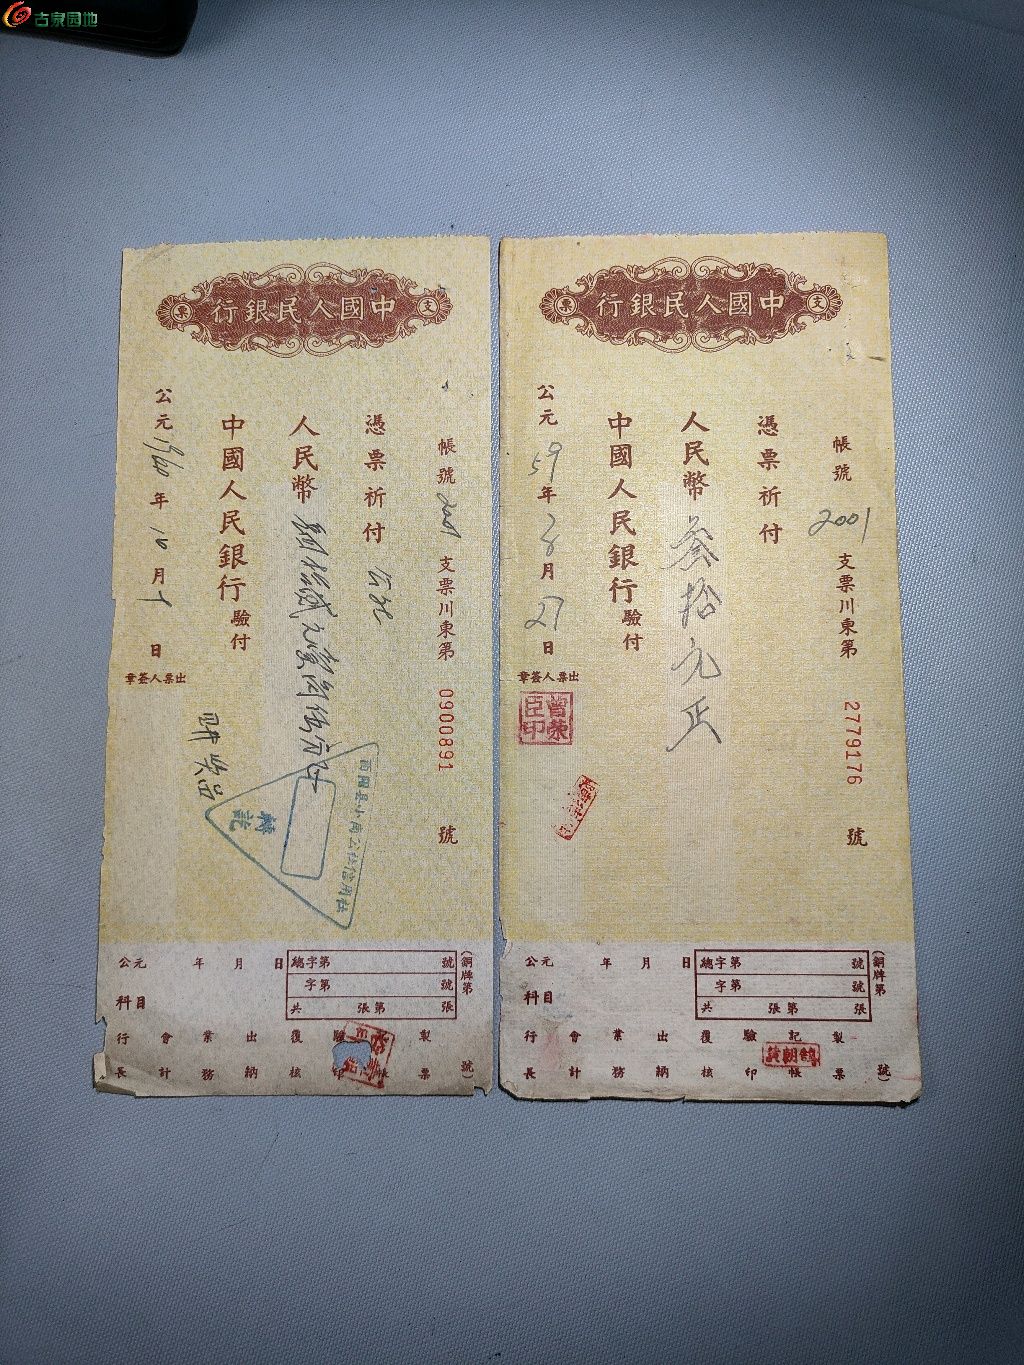 古泉园地
支
中國人民銀行
票
帳號
支票川東第
0900891
號
憑票祈付
人民幣
中國人民銀行
驗付
公元1960年10月
日
出票人簽章
轉訖
公元 年 月 日
總字第 號
字第 號
共 張第 張
(銅牌第 號)
科目
行長 會計 業務 出納 覆核 製票
支
中國人民銀行
票
帳號 2001
支票川東第
2779176
號
憑票祈付
人民幣 叁拾元正
中國人民銀行
驗付
公元59年 月27日
出票人簽章
曾榮臣印
公元 年 月 日
總字第 號
字第 號
共 張第 張
(銅牌第 號)
科目
行長 會計 業務 出納 覆核 驗印 記帳 製票